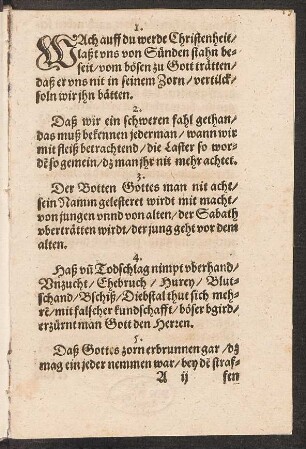 1.
WAch auff du werde Christenheit/
laßt vns von Sünden stahn be-
seit/ vom bösen zu Gott trätten/
daß er vns nit in seinem Zorn/ vertilck/
soln wir jhn bätten.
2.
Daß wir ein schweren fahl gethan/
das muß bekennen jederman/ wann wir
mit fleiß betrachtend/ die Laster so wor-
dē so gemein/ dz man jhr nit mehr achtet.
3.
Der Botten Gottes man nit acht/
sein Namm gelesteret wirdt mit macht/
von jungen vnnd von alten/ der Sabath
vberträtten wirdt/ der jung geht vor dem
alten.
4.
Haß vñ Todschlag nimpt vberhand/
Vnzucht/ Ehebruch/ Hurey/ Blut-
schand/ Bschiß/ Diebstal thut sich meh-
rē/ mit falscher kundschafft/ böser bgird/
erzürnt man Gott den Herren.
5.
Daß Gottes zorn erbrunnen gar/ dz
mag ein jeder nemmen war/ bey dē straf-
A ij
fen